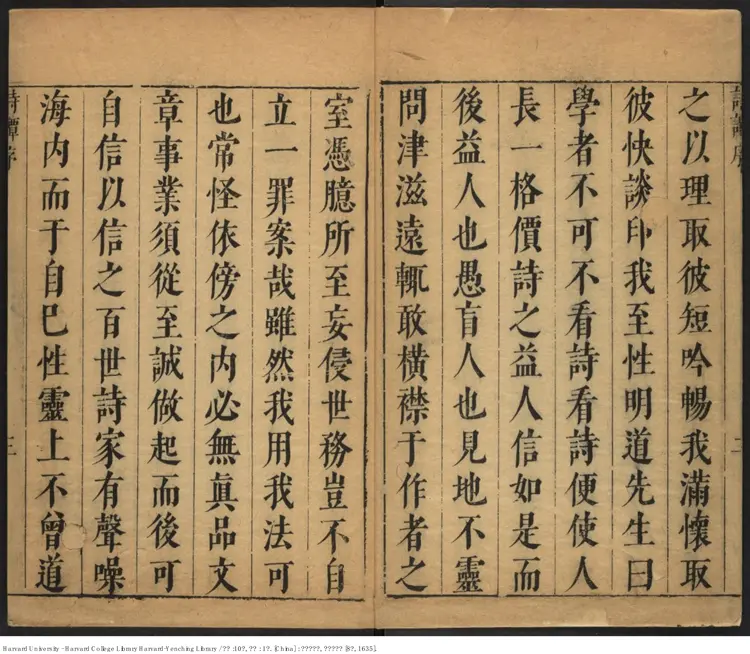 之以理取彼短吟暢我滿懷取
彼快談印我至性明道先生曰
學者不可不看詩看詩便使人
長一格價詩之益人信如是而
後益人也愚盲人也見地不靈
問津滋遠輒敢橫襟于作者之
室憑臆所至妄侵世務豈不自
立一罪案哉雖然我用我法可
也常怪依傍之内必無真品文
章事業須從至誠做起而後可
自信以信之百世詩家有聲噪
海内而于自巳性靈上不曾道
詩譚序
二
詩譚序
三
Harvard University - Harvard College Library Harvard-Yenching Library / ?? :10?, ?? : 1?. [China] : ?????, ????? [8?, 1635].